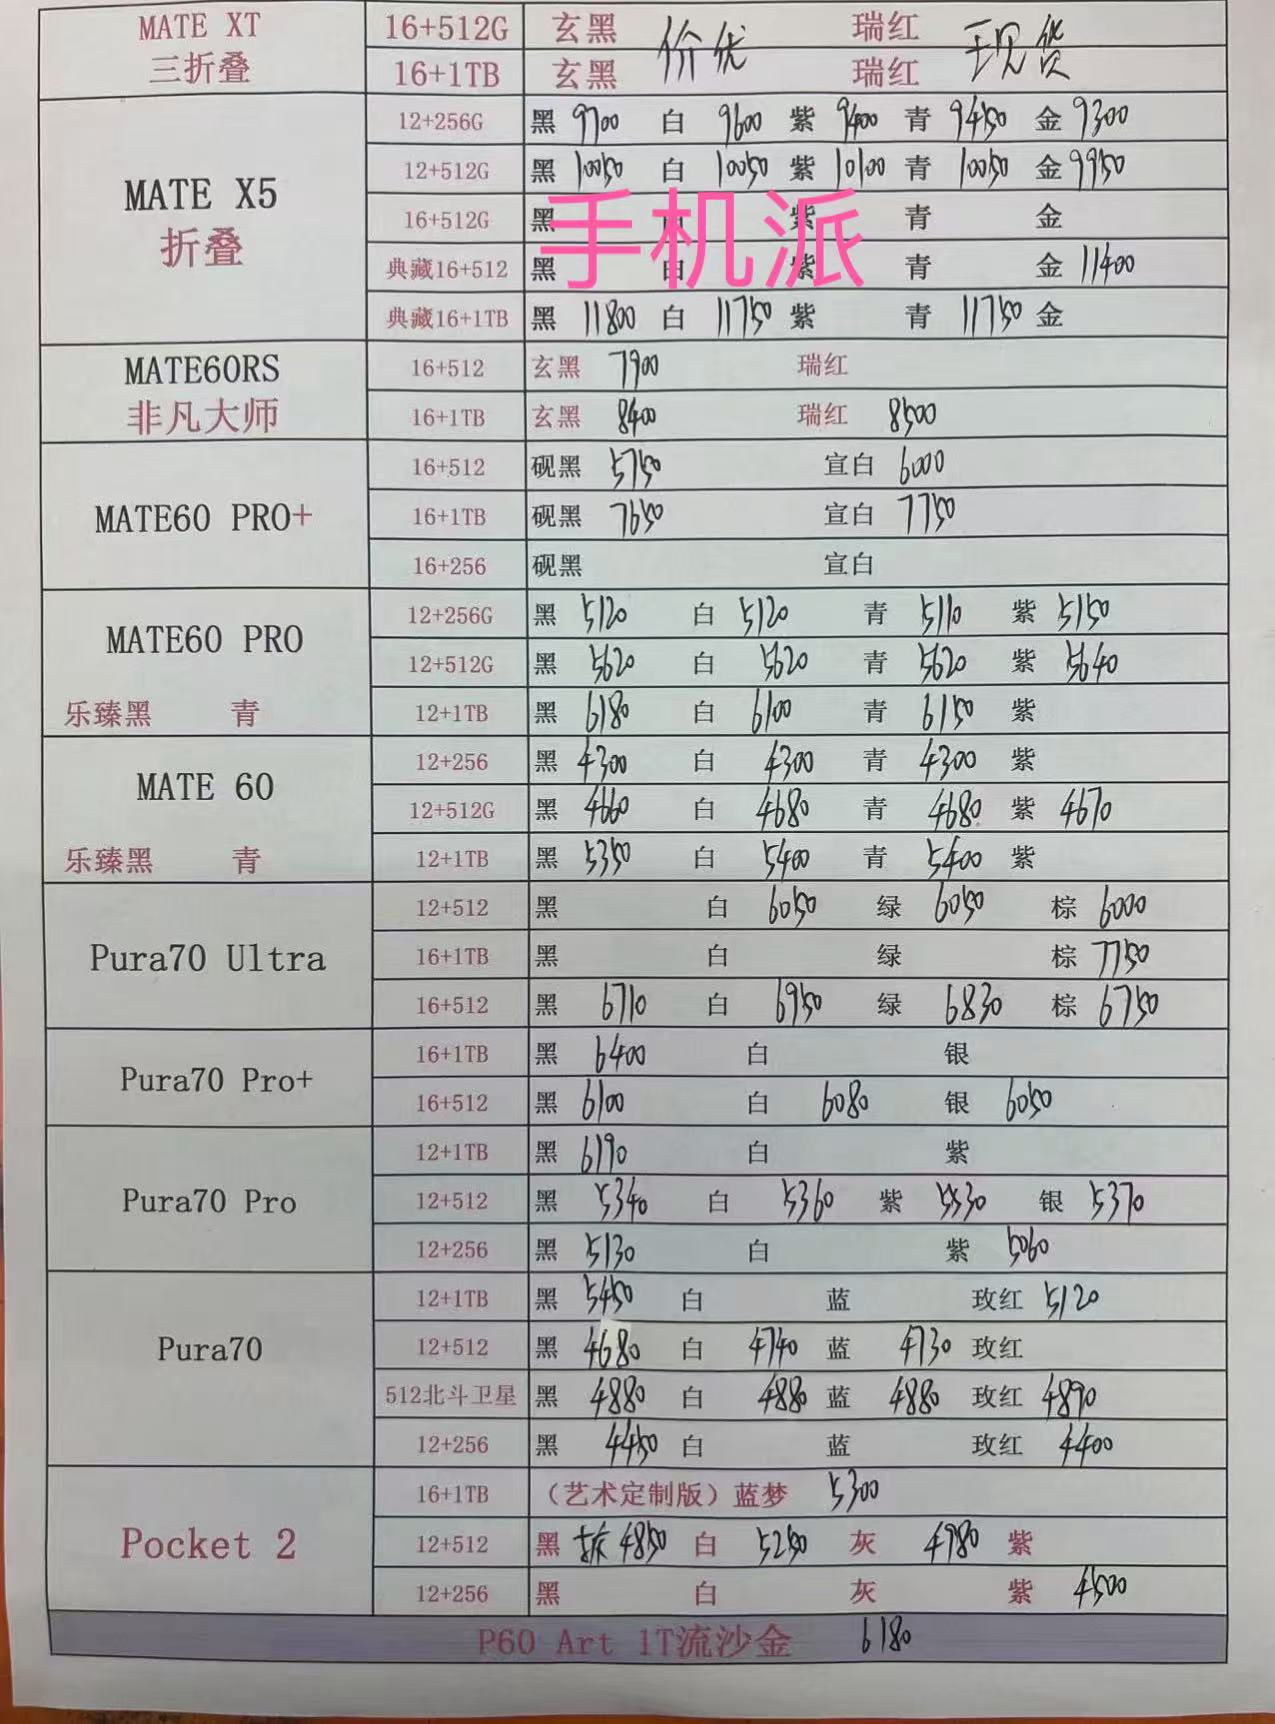 MATE XT 三折叠 16+512G 玄黑 价优 瑞红 现货
16+1TB 玄黑 瑞红
MATE X5 折叠 12+256G 黑 9700 白 9600 紫 9400 青 9450 金 9300
12+512G 黑 10050 白 10050 紫 10100 青 10050 金 9950
手机派
16+512G 黑 白 紫 青 金
典藏16+512 黑 白 紫 青 金 11400
典藏16+1TB 黑 11800 白 11750 紫 青 11750 金
MATE60RS 非凡大师 16+512 玄黑 7900 瑞红
16+1TB 玄黑 8400 瑞红 8500
MATE60 PRO+ 16+512 砚黑 5750 宣白 6000
16+1TB 砚黑 7650 宣白 7750
16+256 砚黑 宣白
MATE60 PRO 12+256G 黑 5120 白 5120 青 5110 紫 5150
12+512G 黑 5620 白 5620 青 5620 紫 5640
乐臻黑 青 12+1TB 黑 6180 白 6100 青 6150 紫
MATE 60 12+256 黑 4300 白 4300 青 4300 紫
12+512G 黑 4660 白 4680 青 4680 紫 4670
乐臻黑 青 12+1TB 黑 5350 白 5400 青 5400 紫
Pura70 Ultra 12+512 黑 白 6050 绿 6050 棕 6000
16+1TB 黑 白 绿 棕 7750
16+512 黑 6710 白 6950 绿 6830 棕 6750
Pura70 Pro+ 16+1TB 黑 6400 白 银
16+512 黑 6100 白 6080 银 6050
Pura70 Pro 12+1TB 黑 6190 白 紫
12+512 黑 5340 白 5360 紫 5530 银 5370
12+256 黑 5130 白 紫 5060
Pura70 12+1TB 黑 5450 白 蓝 玫红 5120
12+512 黑 4680 白 4740 蓝 4730 玫红
512北斗卫星 黑 4880 白 4880 蓝 4880 玫红 4890
12+256 黑 4450 白 蓝 玫红 4400
Pocket 2 16+1TB （艺术定制版）蓝梦 5300
12+512 黑 4850 白 5250 灰 4980 紫
12+256 黑 白 灰 紫 4500
P60 Art 1T流沙金 6180